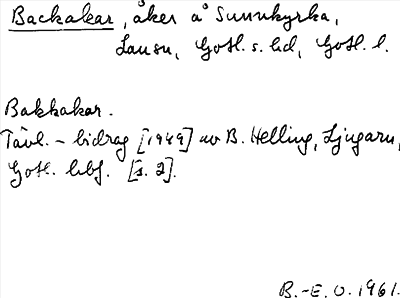 Backakar, åker å Sunnkyrka,
Lausu, Gotl. s. hd, Gotl. l.
Bakkakar.
Tävl. - bidrag [1949] av B. Helling, Ljugarn,
Gotl. hbf. [s. 2].
B.-E. O. 1961.